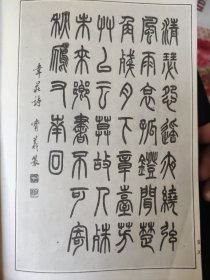 清瑟怨遙夜繞弦
風雨哀孤鐙聞楚
角殘月下章臺芳
艸已云莫故人殊
未來鄉書不可寄
秋雁又南回
韋莊詩 篆